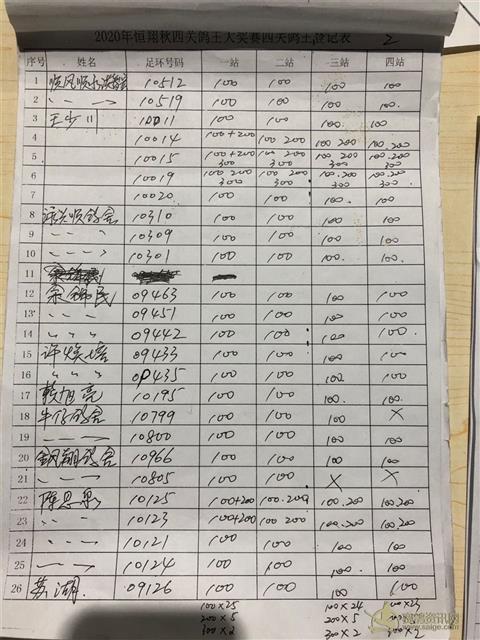 2020年恒翔秋四关鸽王大奖赛四关鸽王登记表 2
序号 姓名 足环号码 一站 二站 三站 四站
1 10512 100 100 100 100
2 〃 〃 10519 100 100 100 100.
3 王少川 10011 100 100 100. 100.
4 10014 100+200 100 200 100.200 100.200
5 10015 100+200 300 100 200 300. 100.200 300 100.200 300
6 10019 100 200 300 100 200 300. 100.200 300 100.200 300
7 10020 100 100 100. 100
8 10310 100 100 100 100.
9 〃 〃 〃 10309 100 100 100. 100.
10 〃 〃 〃 10301 100 100 100. 100.
11
12 09463 100 100 100 100
13 〃 〃 〃 09451 100 100 100 100.
14 〃 〃 〃 09442 100 100 100 100.
15 09433 100 100 100 100
16 〃 〃 〃 09435 100 100 100. 100
17 赖旭亮 10195 100 100 100. 100.
18 牛仔鸽舍 10799 100 100 100 ×
19 10800 100 100 100. 100
20 10966 100 100 100 100
21 10805 100 100 × ×
22 10125 100+200 100.200 100.200 100.200
23 〃 〃 10123 100+200 100 200 100.200 100.200
24 〃 〃 10121 100 100 100 100
25 10124 100 100 100 100.
26 苏湖 09126 100 100 100 100
100×25 100×24 100×23
200×5 200×5
300×2 300×2 300×2
赛鸽资讯网
www.saige.com